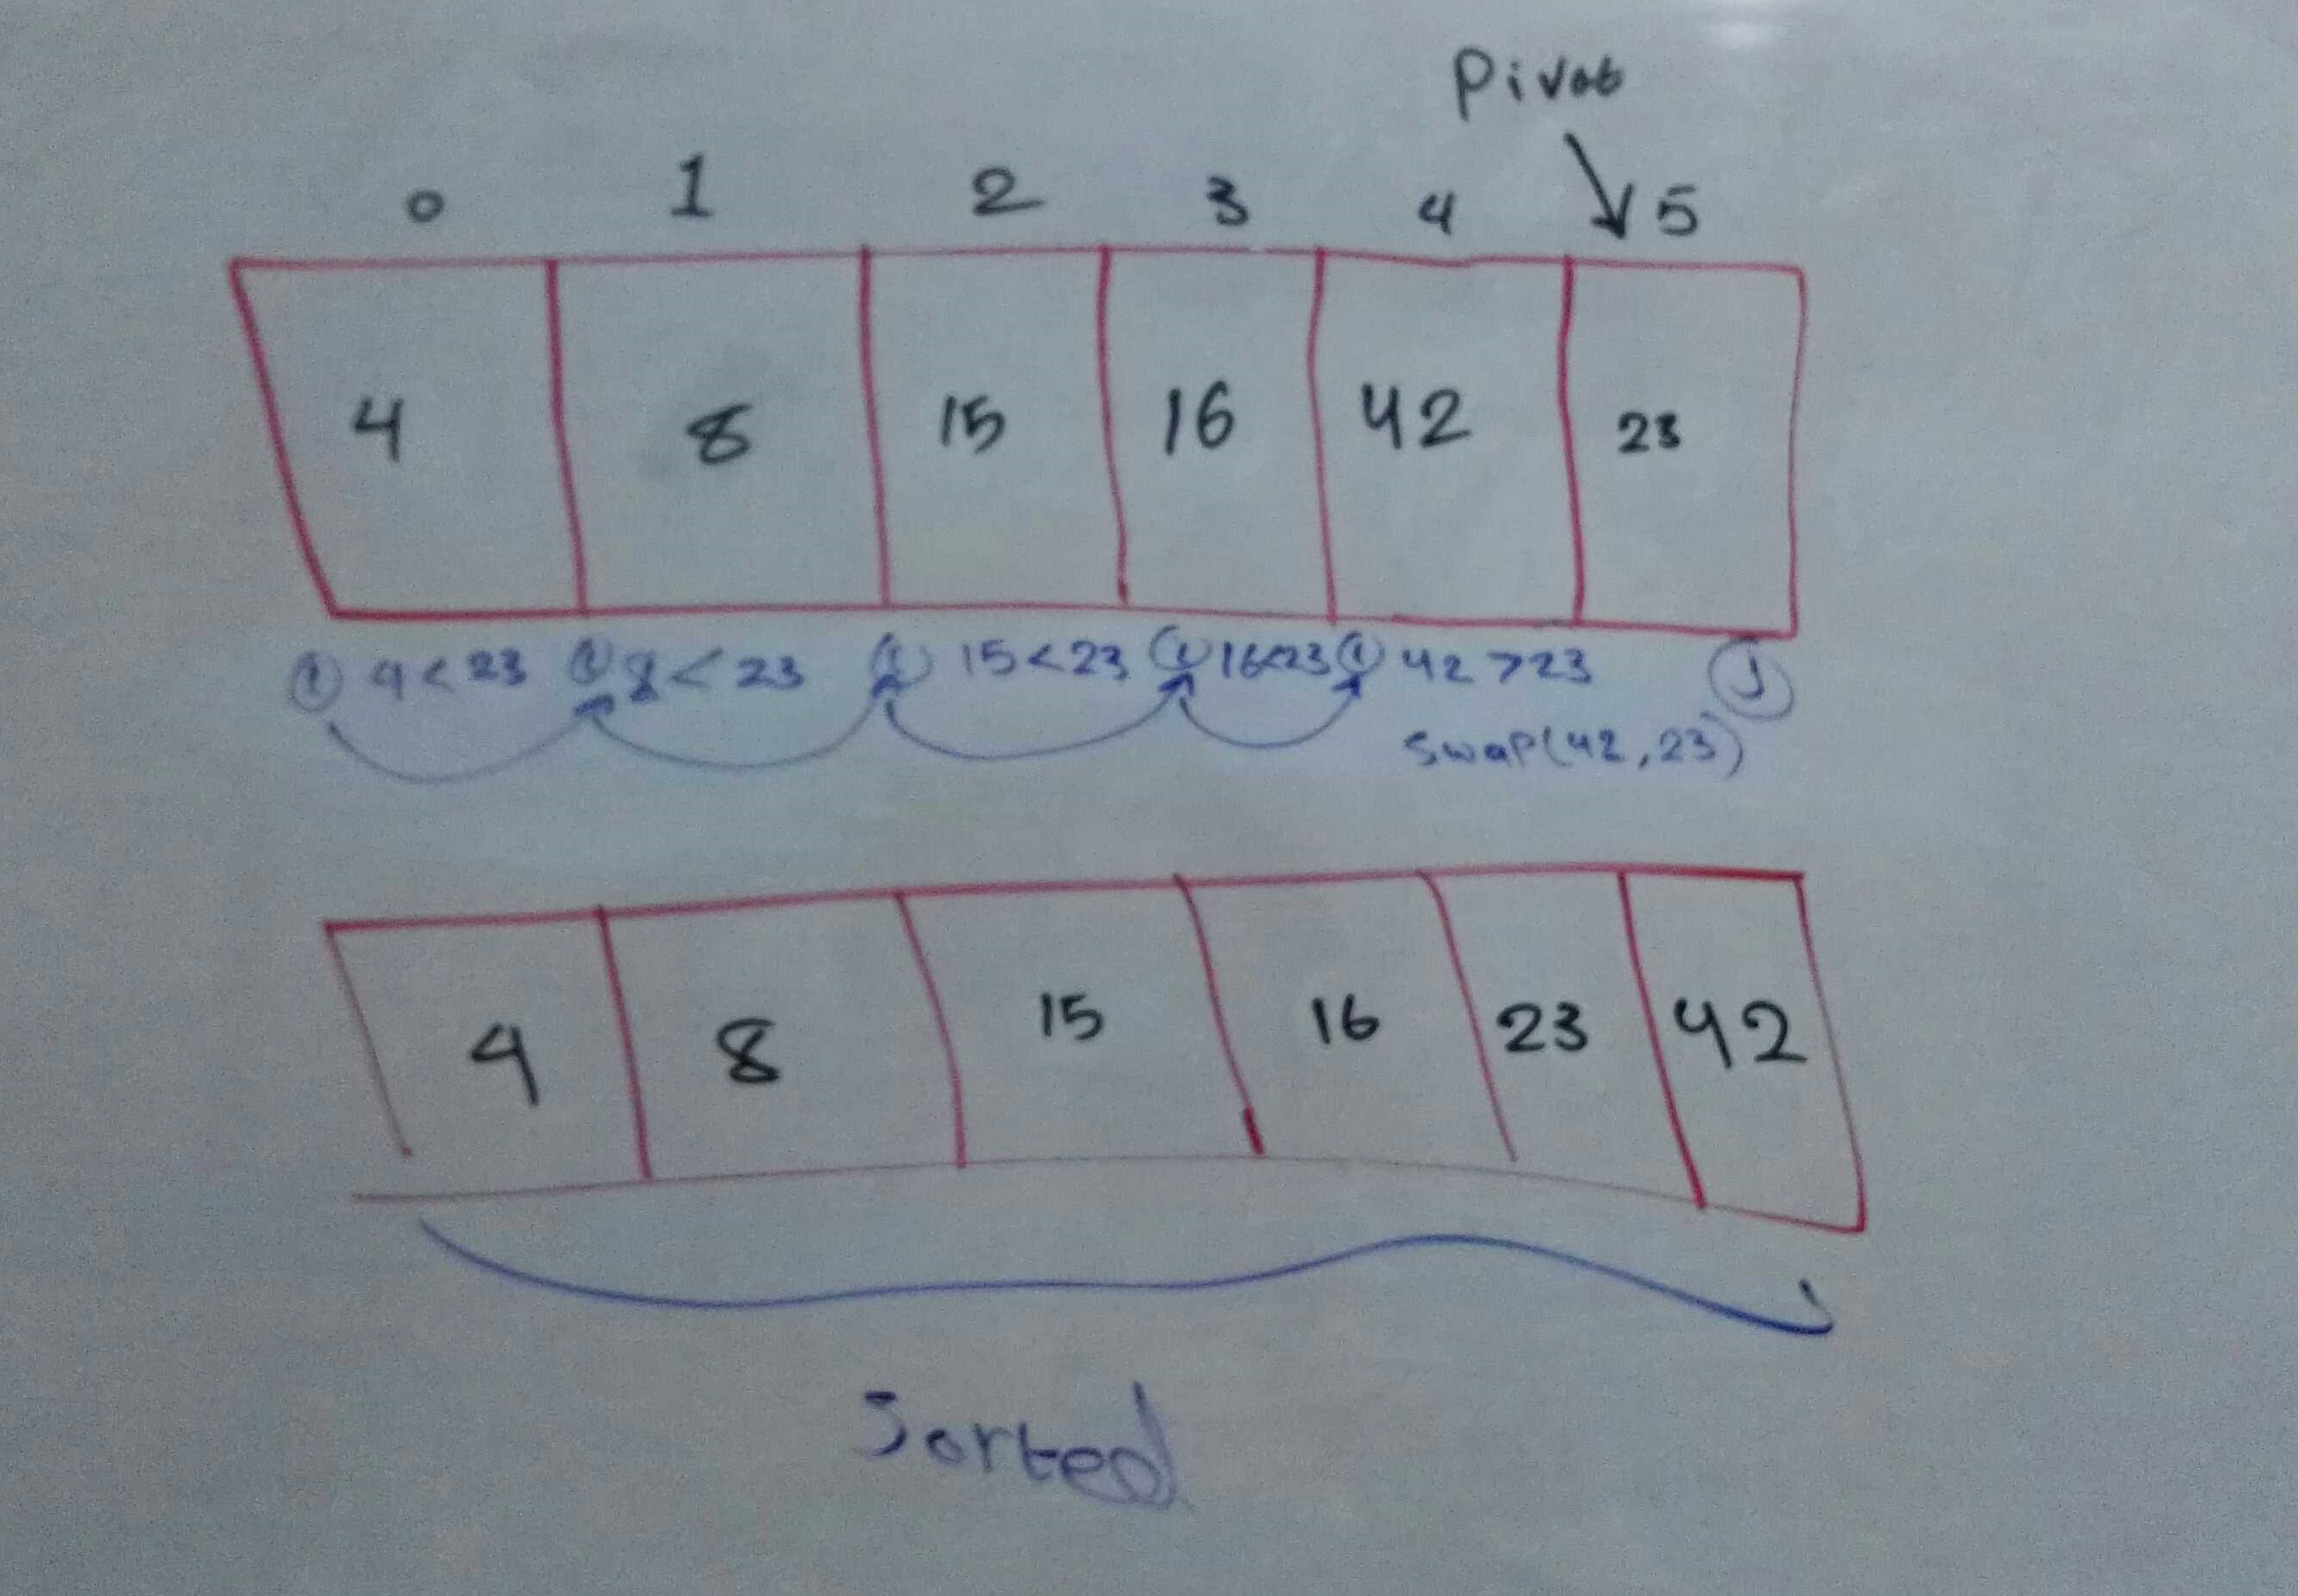 Pivot
0 1 2 3 4 5
4 8 15 16 42 23
i 4<23 i 8<23 i 15<23 i 16<23 i 42>23 J
swap(42,23)
4 8 15 16 23 42
Sorted